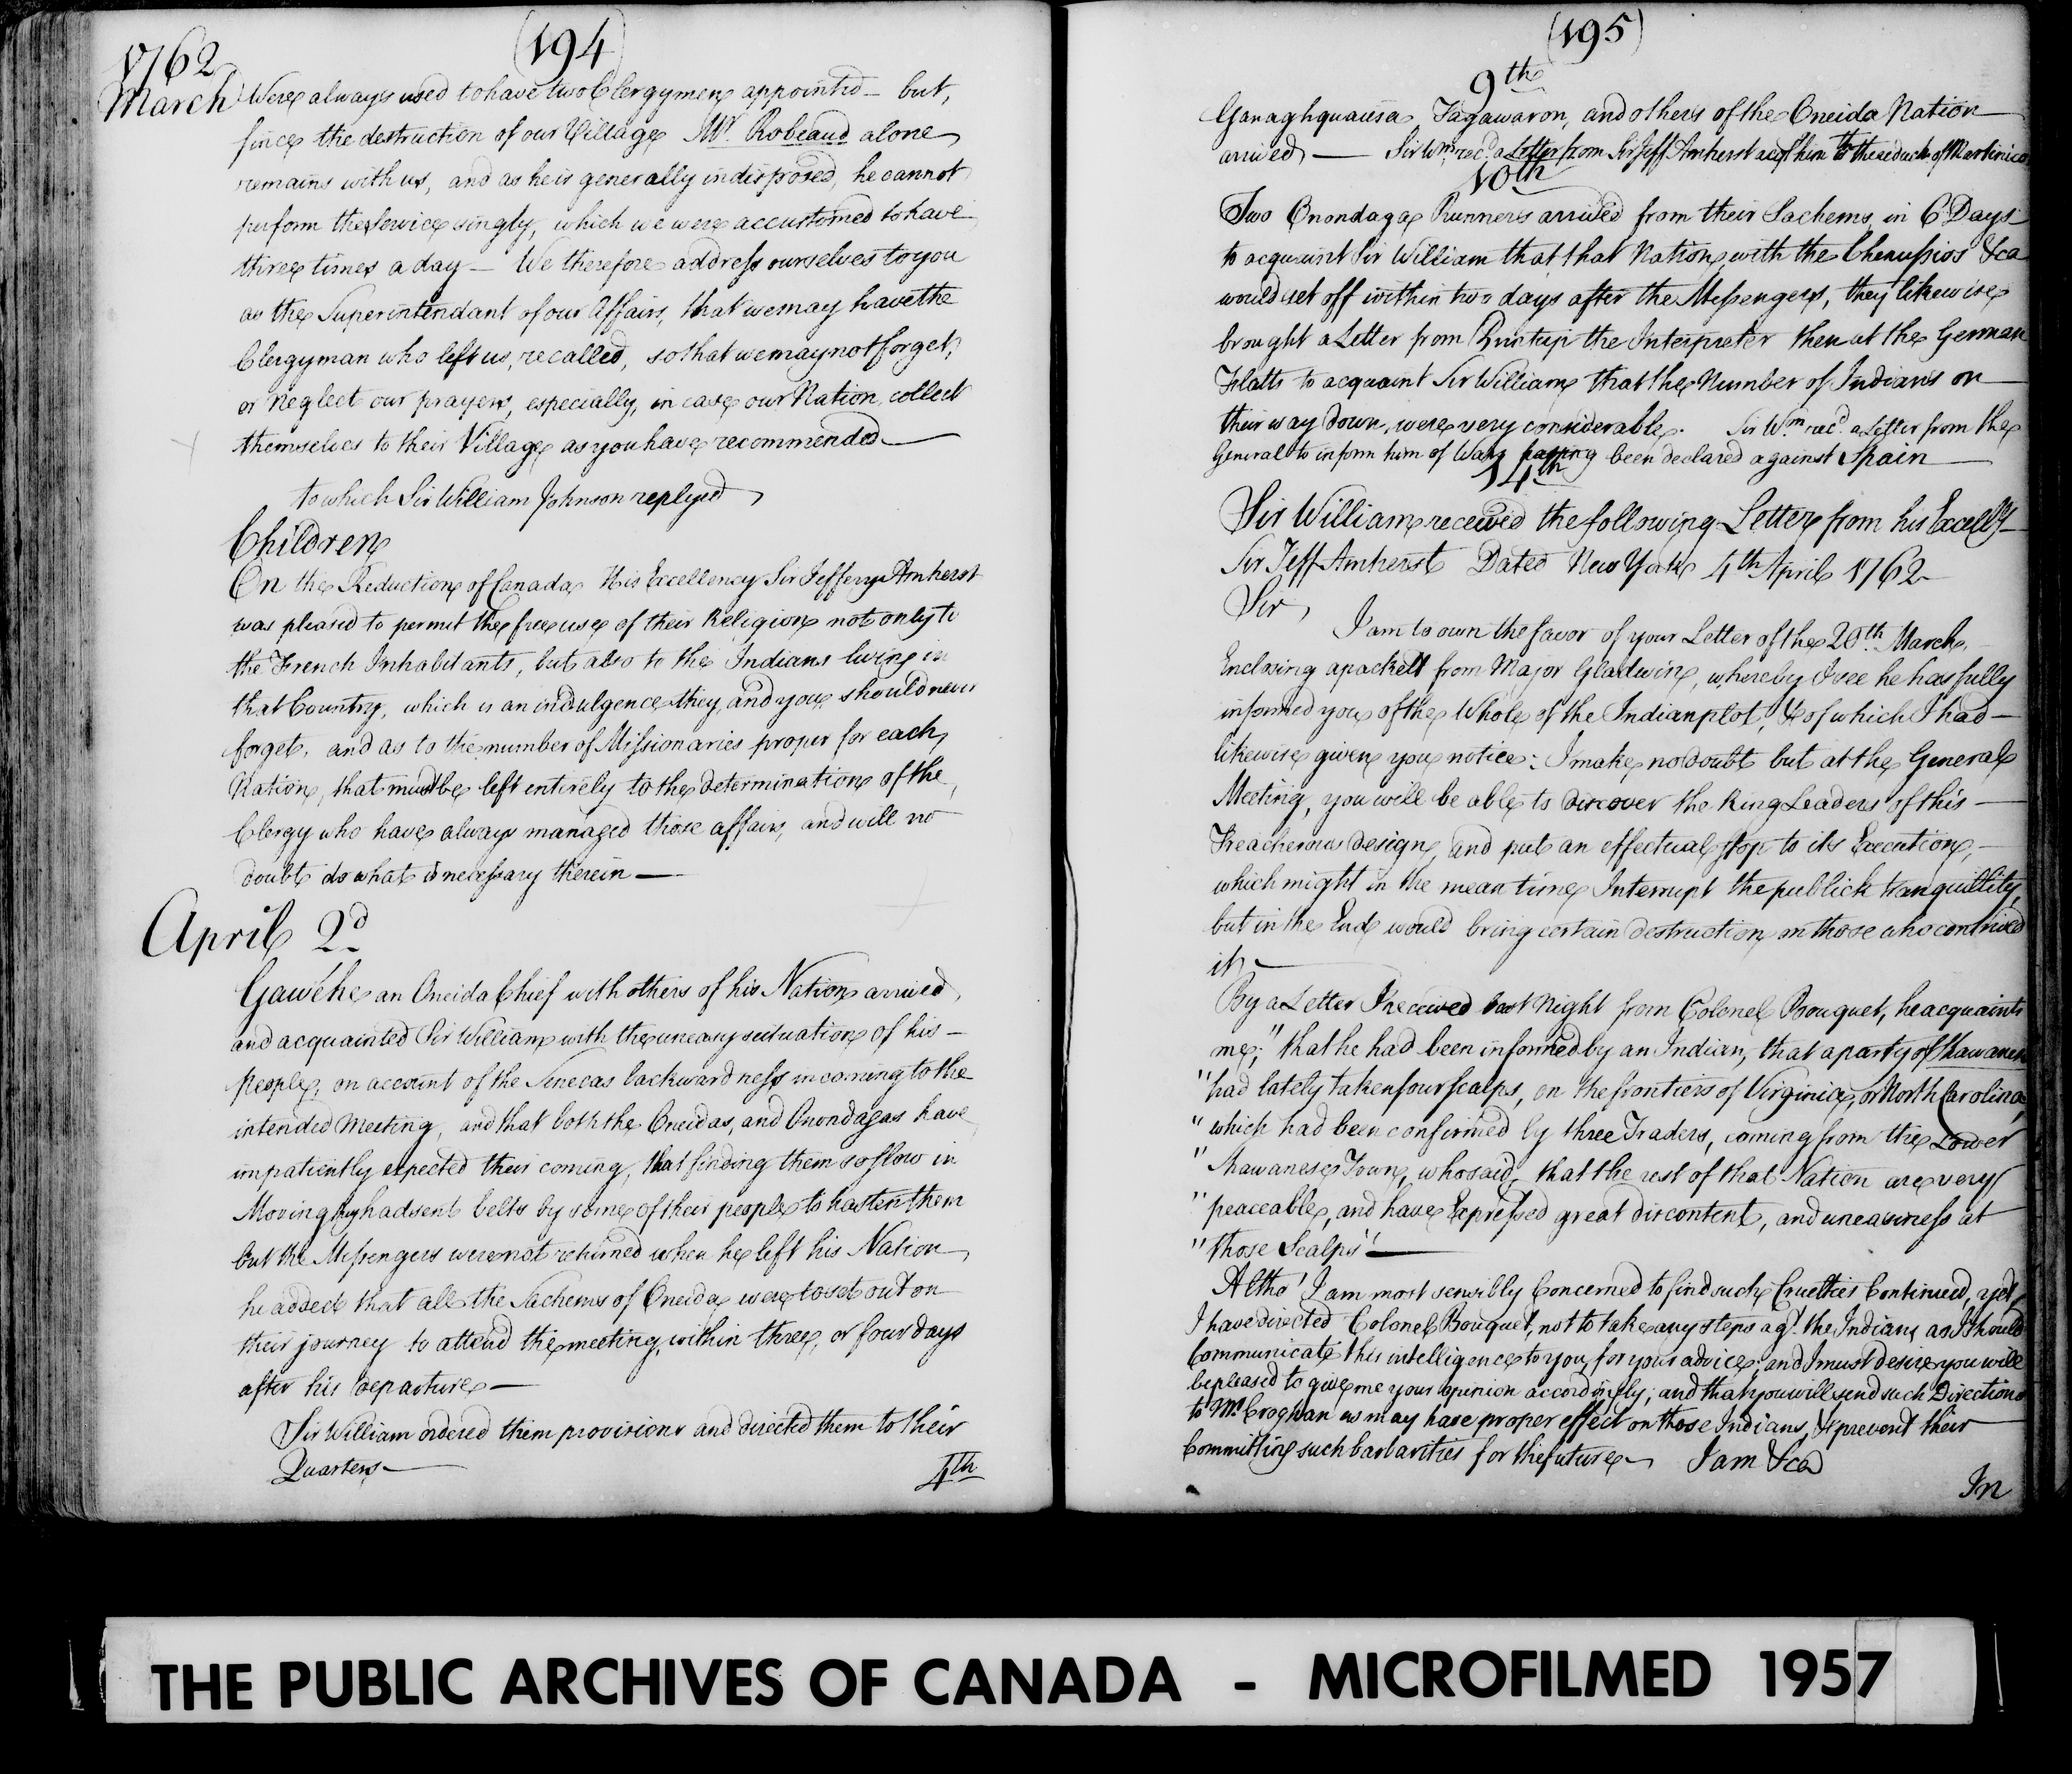 (194)
1762
March Were always used to have two Clergymen appointed – but,
since the destruction of our Village Mr. Robeaud alone
remains with us, and as he is generally indisposed, he cannot
perform the Service singly, which we were accustomed to have
three times a day – We therefore address ourselves to you
as the Superintendant of our Affairs, that we may have the
Clergyman who left us, recalled, so that we may not forget,
or Neglect our prayers, especially, in case our Nation collect
themselves to their Village as you have recommended —
to which Sir William Johnson replyed
Children
On the Reduction of Canada His Excellency Sir Jeffery Amherst
was pleased to permit the free use of their Religion not only to
the French Inhabitants, but also to the Indians living in
that Country, which is an indulgence they, and you should never
forget, and as to the number of Missionaries proper for each
Nation, that must be left entirely to the determination of the
Clergy who have always managed those affairs, and will no
doubt do what is necessary therein —
April 2d
Gawéhe an Oneida Chief with others of his Nation arrived,
and acquainted Sir William with the uneasy situation of his –
people, on account of the Senecas backwardness in coming to the
intended Meeting, and that both the Oneidas, and Onondagas have
impatiently expected their coming, that finding them so slow in
Moving they had sent belts by some of their people to hasten them
but the Messengers were not returned when he left his Nation
he added that all the Sachems of Oneida were to set out on
their journey to attend the meeting, within three, or four days
after his departure —
Sir William ordered them provisions and directed them to their
Quarters —
4th
(195)
9th
Ganaghquaiesa Tagawaron, and others of the Oneida Nation
arrived — Sir Wm. rec'd a Letter from Sir Jeff Amherst acqt him the reduct. of Martinico
10th
Two Onondaga Runners arrived from their Sachems, in 6 Days
to acquaint Sir William that that Nation, with the Chenussios &ca
would set off within two days after the Messengers, they likewise
brought a Letter from Printup the Interpreter then at the German
Flatts to acquaint Sir William that the Number of Indians on
their way down, were very considerable. Sir Wm. rec'd. a Letter from the
General to inform him of Warg having been declared against Spain
14th
Sir William received the following Letter from his Excelly
Sir Jeff Amherst Dated New York 4th April 1762
Sir,
I am to own the favor of your Letter of the 20th. March,
Enclosing a packett from Major Gladwin, whereby I see he has fully
informed you of the Whole of the Indian plot, & of which I had –
likewise given you notice: I make no doubt but at the General
Meeting, you will be able to discover the Ring Leaders of this –
Treacherous design, and put an effectual stop to its Execution, –
which might in the mean time Interrupt the publick tranquillity,
but in the End would bring certain destruction on those who contrived
it, —
By a Letter I received last Night from Colonel Bouquet, he acquaints
me; "that he had been informed by an Indian, that a party of Shawanese
"had lately taken four scalps, on the frontiers of Virginia, or North Carolina,
"which had been confirmed by three Traders, coming from the Lower
"Shawanese Town, who said, that the rest of that Nation are very
"peaceable, and have Expressed great discontent, and uneasiness at
"those Scalps" —
Altho' I am most sensibly Concerned to find such Cruelties Continued, yet,
I have directed Colonel Bouquet, not to take any steps agt. the Indians as I should
Communicate this intelligence to you, for your advice; and I must desire you will
be pleased to give me your opinion accordingly; and that you will send such Directions
to Mr. Croghan as may have proper effect on those Indians, & prevent their
Committing such barbarities for the future — I am &ca
In
THE PUBLIC ARCHIVES OF CANADA - MICROFILMED 1957